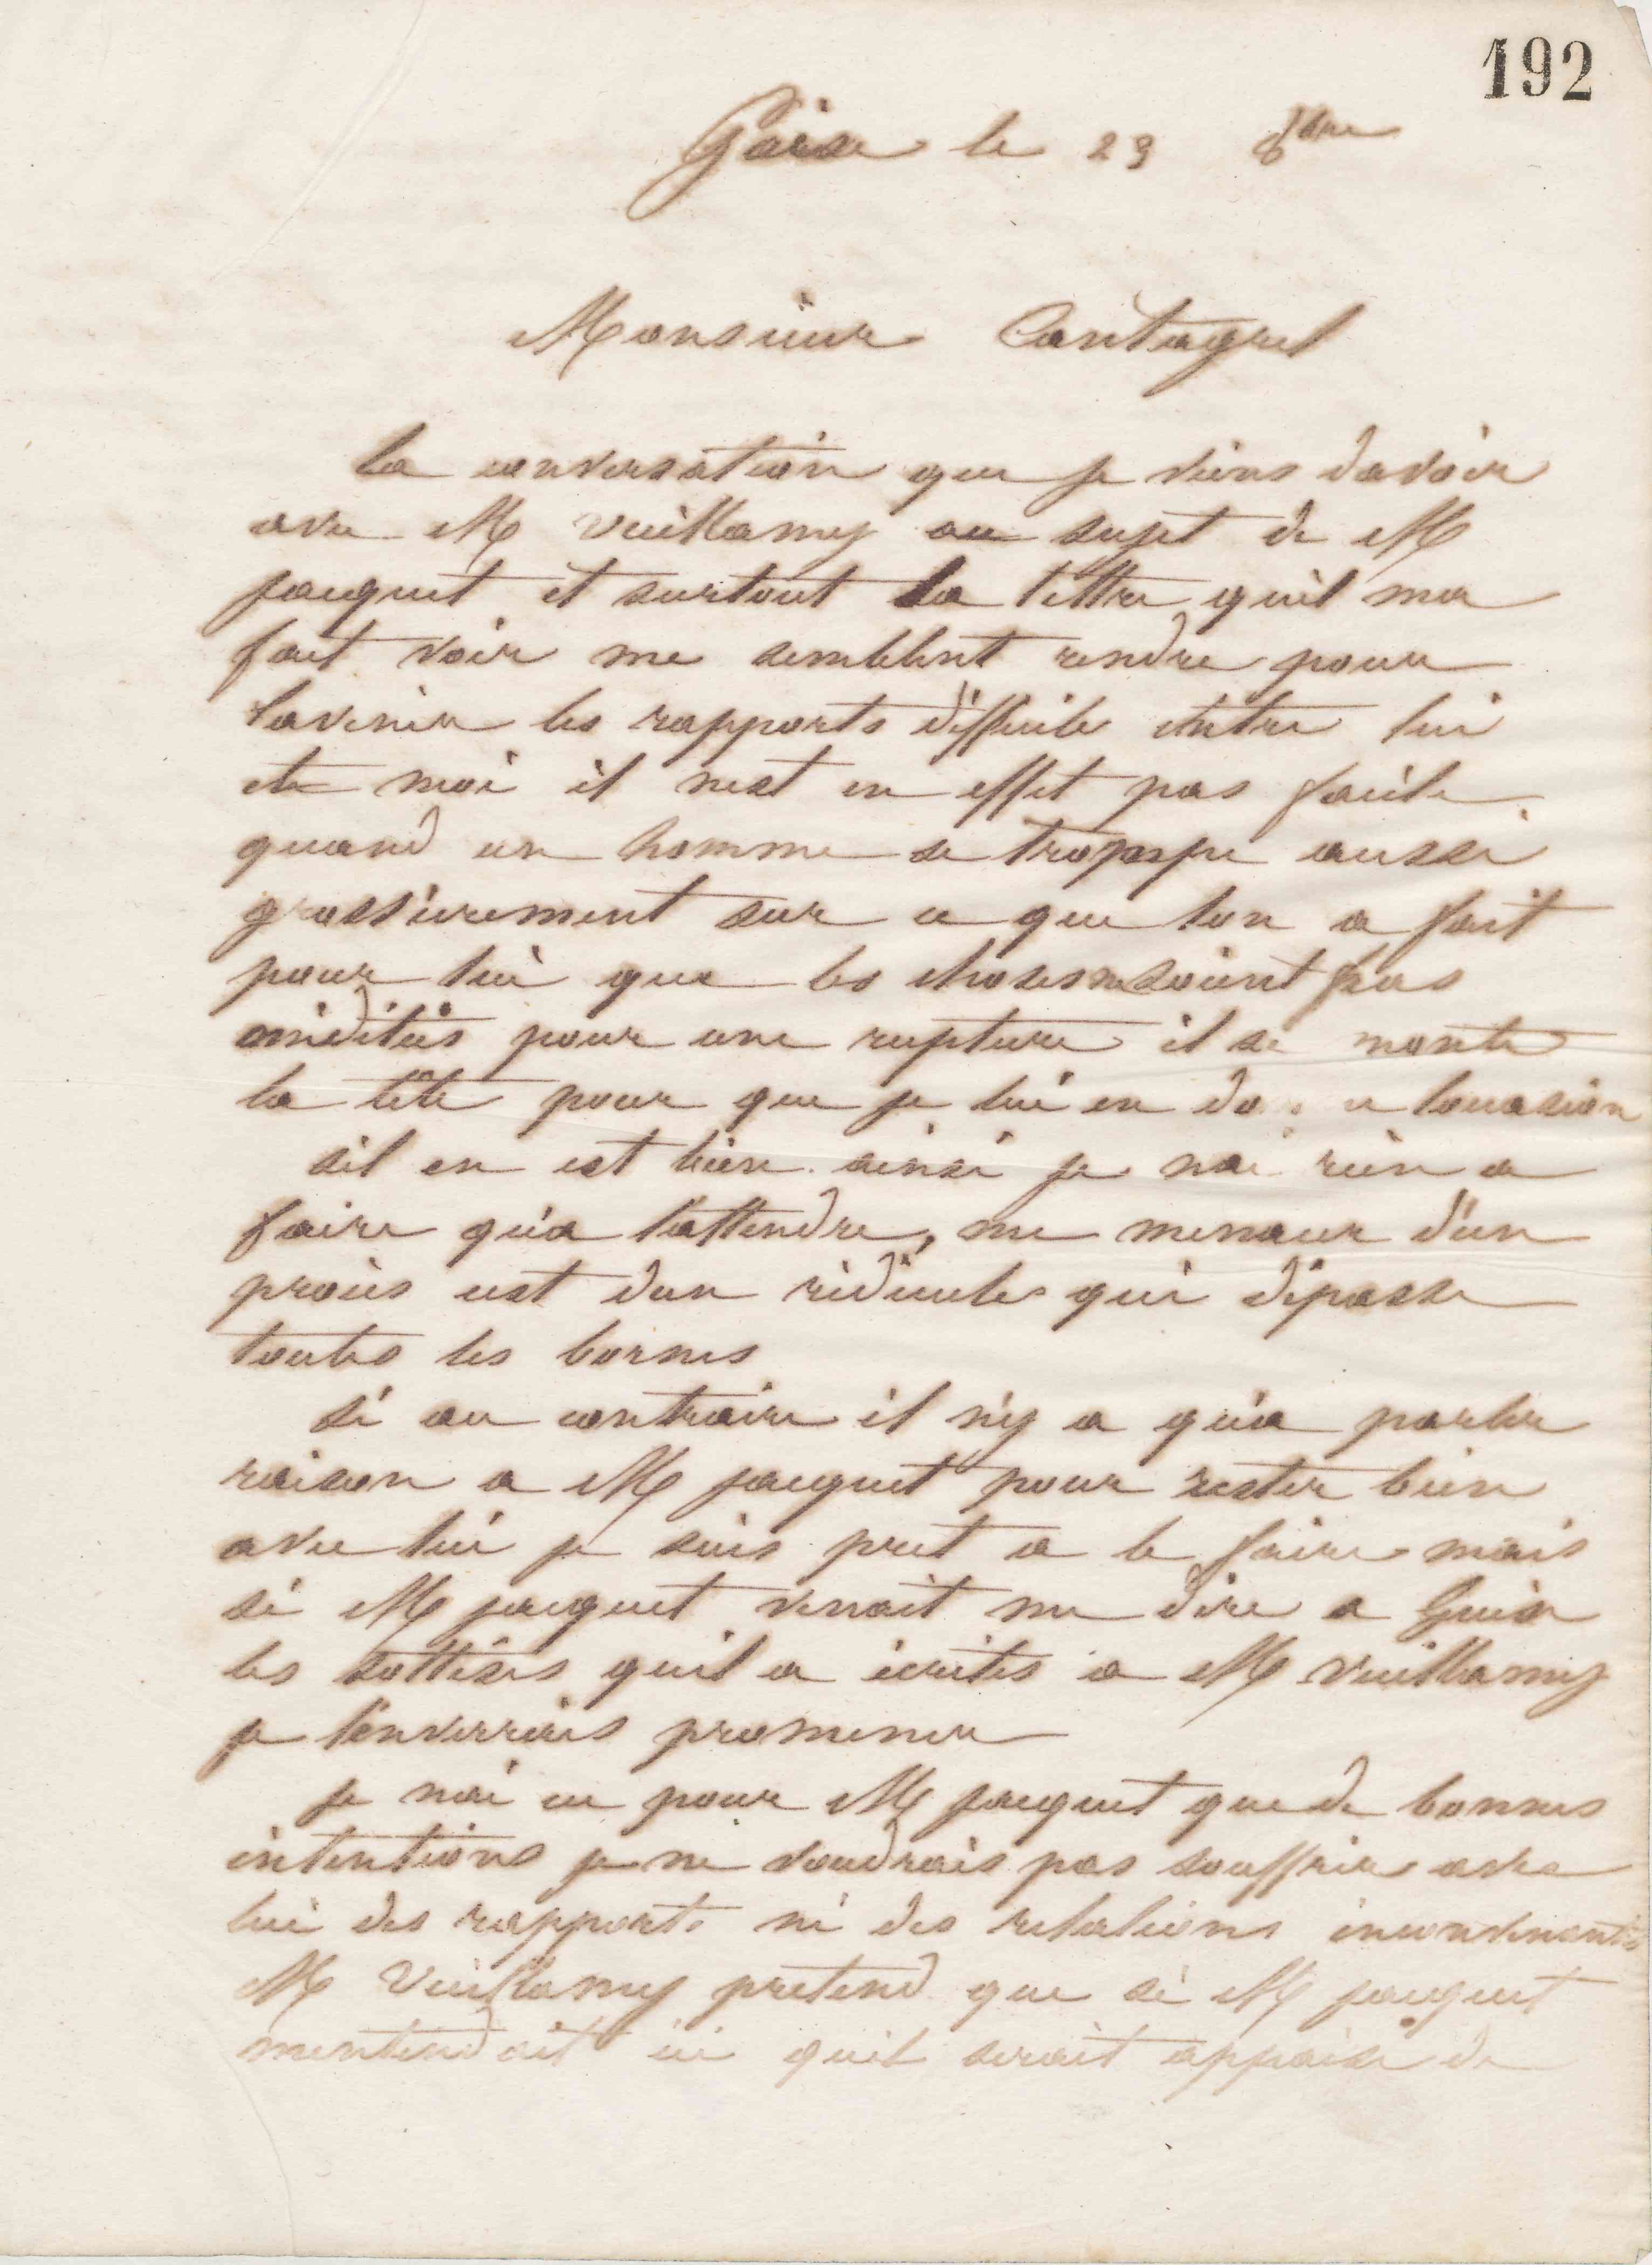 192
Guise le 29 8bre
Monsieur Cantagrel
la conversation que je viens davoir
avec M Vuillamy au sujet de M
jacquet et surtout la lettre quil ma
fait voir me semblent rendre pour
lavenir les rapports difficiles entre lui
et moi il nest en effet pas facile
quand un homme se trompe aussi
grossièrement sur ce que lon a fait
pour lui que les choses ne soient pas
méditées pour une rupture il se monte
la tête pour que je lui en locasion
sil en est bien ainsi je nai rien a
faire qu'a l'attendre, me menacer d'un
procès est dun ridicule qui dépasse
toutes les bornes
si au contraire il n'y a qu'a parler
raison a M jacquet pour rester bien
avec lui je suis pret a le faire mais
si M jacquet venait me dire a Guise
les sottises quil a écrites a M Vuillamy
je l'enverrais promener
je nai eu pour M jacquet que de bonnes
intentions je ne voudrais pas souffrir avec
lui des rapports ni des relations inconvenantes
M Vuillamy pretend que si M jacquet
mentendait ici quil serait appaisé de